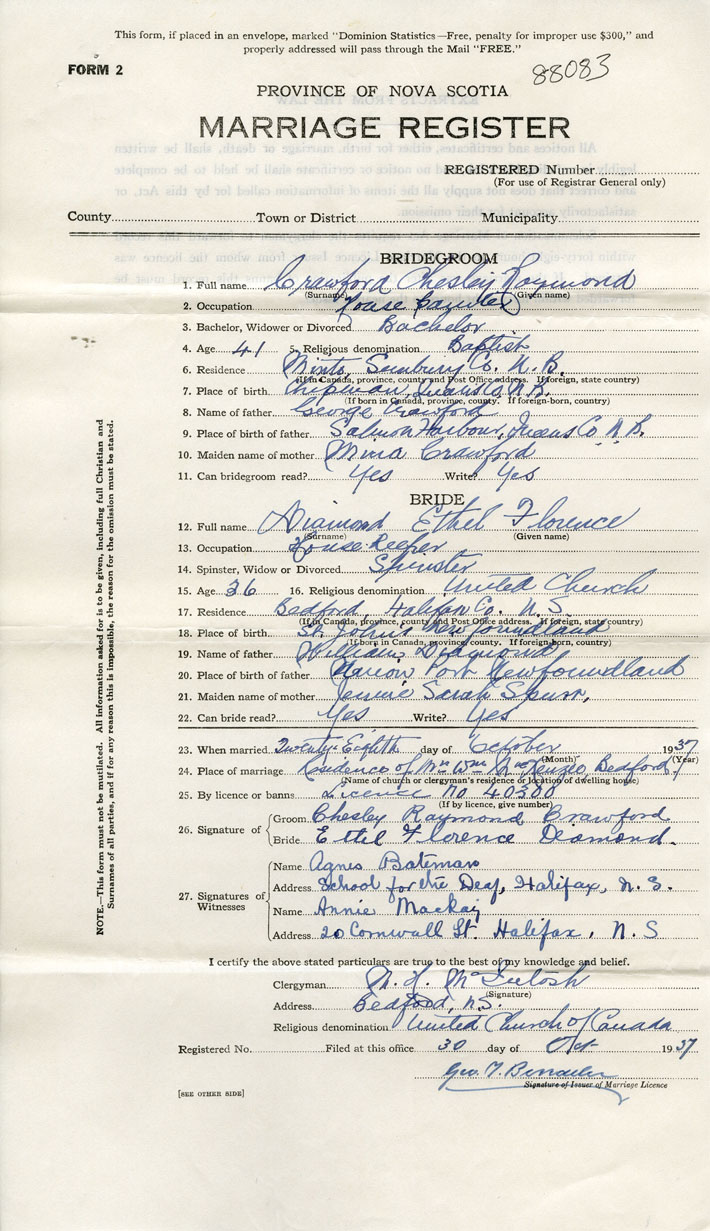 This form, if placed in an envelope, marked "Dominion Statistics—Free, penalty for improper use $300," and
properly addressed will pass through the Mail "FREE."
FORM 2
88083
PROVINCE OF NOVA SCOTIA
MARRIAGE REGISTER
REGISTERED Number
(For use of Registrar General only)
County Town or District Municipality
BRIDEGROOM
1. Full name Crawford Chesley Raymond
(Surname) (Given name)
2. Occupation House Painter
3. Bachelor, Widower or Divorced Bachelor
4. Age 41 5. Religious denomination Baptist
6. Residence Minto, Sunbury Co. N.B.
(If in Canada, province, county and Post Office address. If foreign, state country)
7. Place of birth Chipman, Queens Co. N.B.
(If born in Canada, province, county. If foreign-born, country)
8. Name of father George Crawford
9. Place of birth of father Salmon Harbour, Queens Co N.B.
10. Maiden name of mother Mina Crawford
11. Can bridegroom read? Yes Write? Yes
BRIDE
12. Full name Diamond Ethel Florence
(Surname) (Given name)
13. Occupation House-Keeper
14. Spinster, Widow or Divorced Spinster
15. Age 36 16. Religious denomination United Church
17. Residence Bedford, Halifax Co. N.S.
(If in Canada, province, county and Post Office address. If foreign, state country)
18. Place of birth St. John's Newfoundland
(If born in Canada, province, county. If foreign-born, country)
19. Name of father William Diamond
20. Place of birth of father Port Newfoundland
21. Maiden name of mother Jennie Sarah
22. Can bride read? Yes Write? Yes
23. When married Twenty-Eighth day of October 1937
(Month) (Year)
24. Place of marriage Residence of Bedford
(Name of church or clergyman's residence or location of dwelling house)
25. By licence or banns Licence no 40300
(If by licence, give number)
26. Signature of
Groom Chesley Raymond Crawford
Bride Ethel Florence Diamond.
27. Signatures of Witnesses
Name Agnes Bateman
Address School for the Deaf, Halifax, N.S.
Name Annie Mackay
Address 20 Cornwall St. Halifax, N.S
I certify the above stated particulars are true to the best of my knowledge and belief.
Clergyman McIntosh
(Signature)
Address Bedford, N.S.
Religious denomination United Church of Canada
Registered No. Filed at this office 30 day of Oct 1937
Geo. T.
Signature of Issuer of Marriage Licence
[SEE OTHER SIDE]
NOTE.—This form must not be mutilated. All information asked for is to be given, including full Christian and
Surnames of all parties, and if for any reason this is impossible, the reason for the omission must be stated.